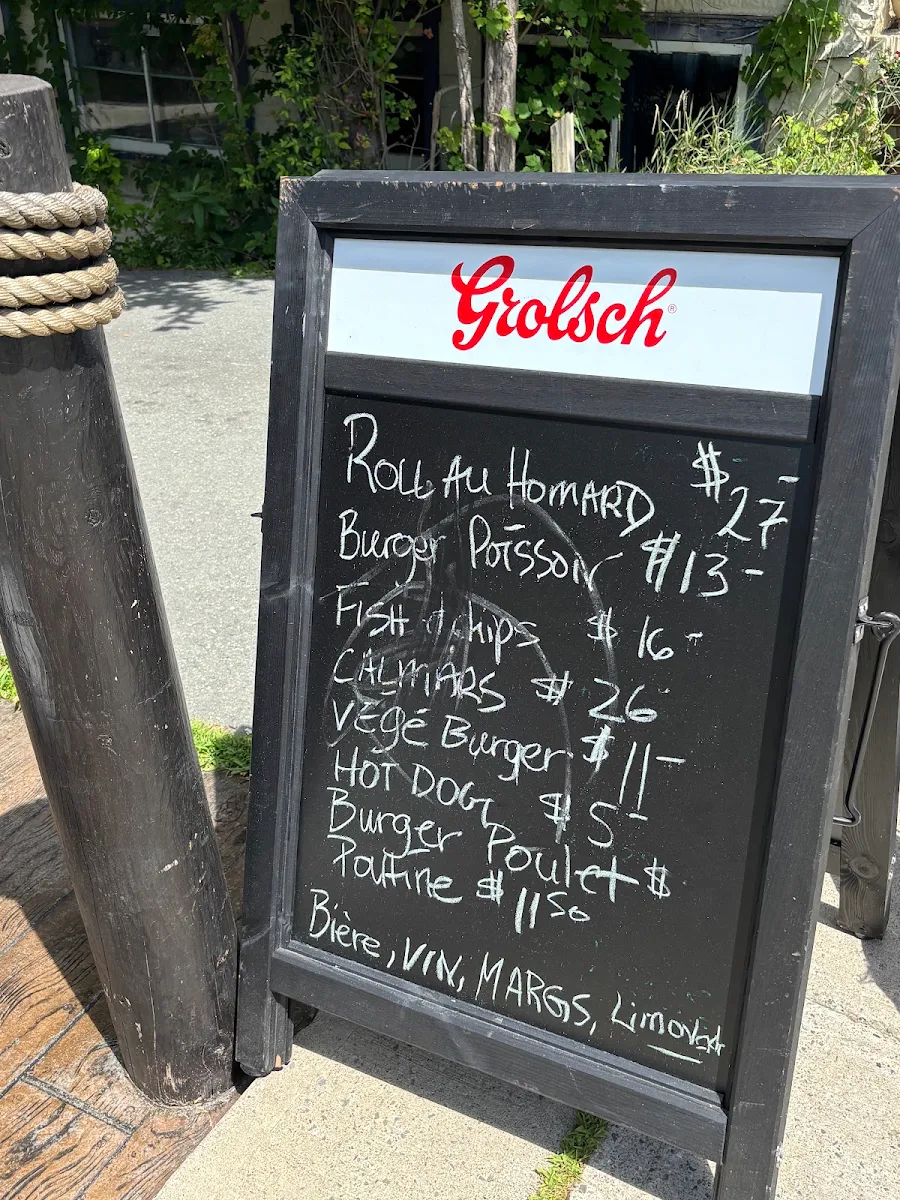 Grolsch®
Roll Au Homard $27-
Burger Poisson $13-
Fish & chips $16-
CALMARS $26
VÉGÉ Burger $11-
HOT DOG $5-
Burger Poulet $
Poutine $11 50
Bière, VIN, MARGS, Limonade